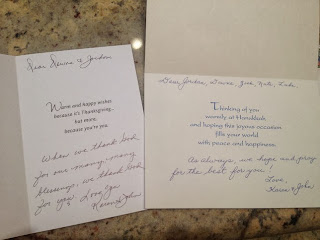 Dear Dawna & Jordan
Warm and happy wishes
because it's Thanksgiving...
but more,
because you're you.
When we thank God
for our many, many
blessings, we thank God
for you. Love you
Karen & John
Dear Jordan, Dawna, Zoe, Nate, Luke,
Thinking of you
warmly at Hanukkah
and hoping this joyous occasion
fills your world
with peace and happiness.
As always, we hope and pray
for the best for you!
Love,
Karen & John